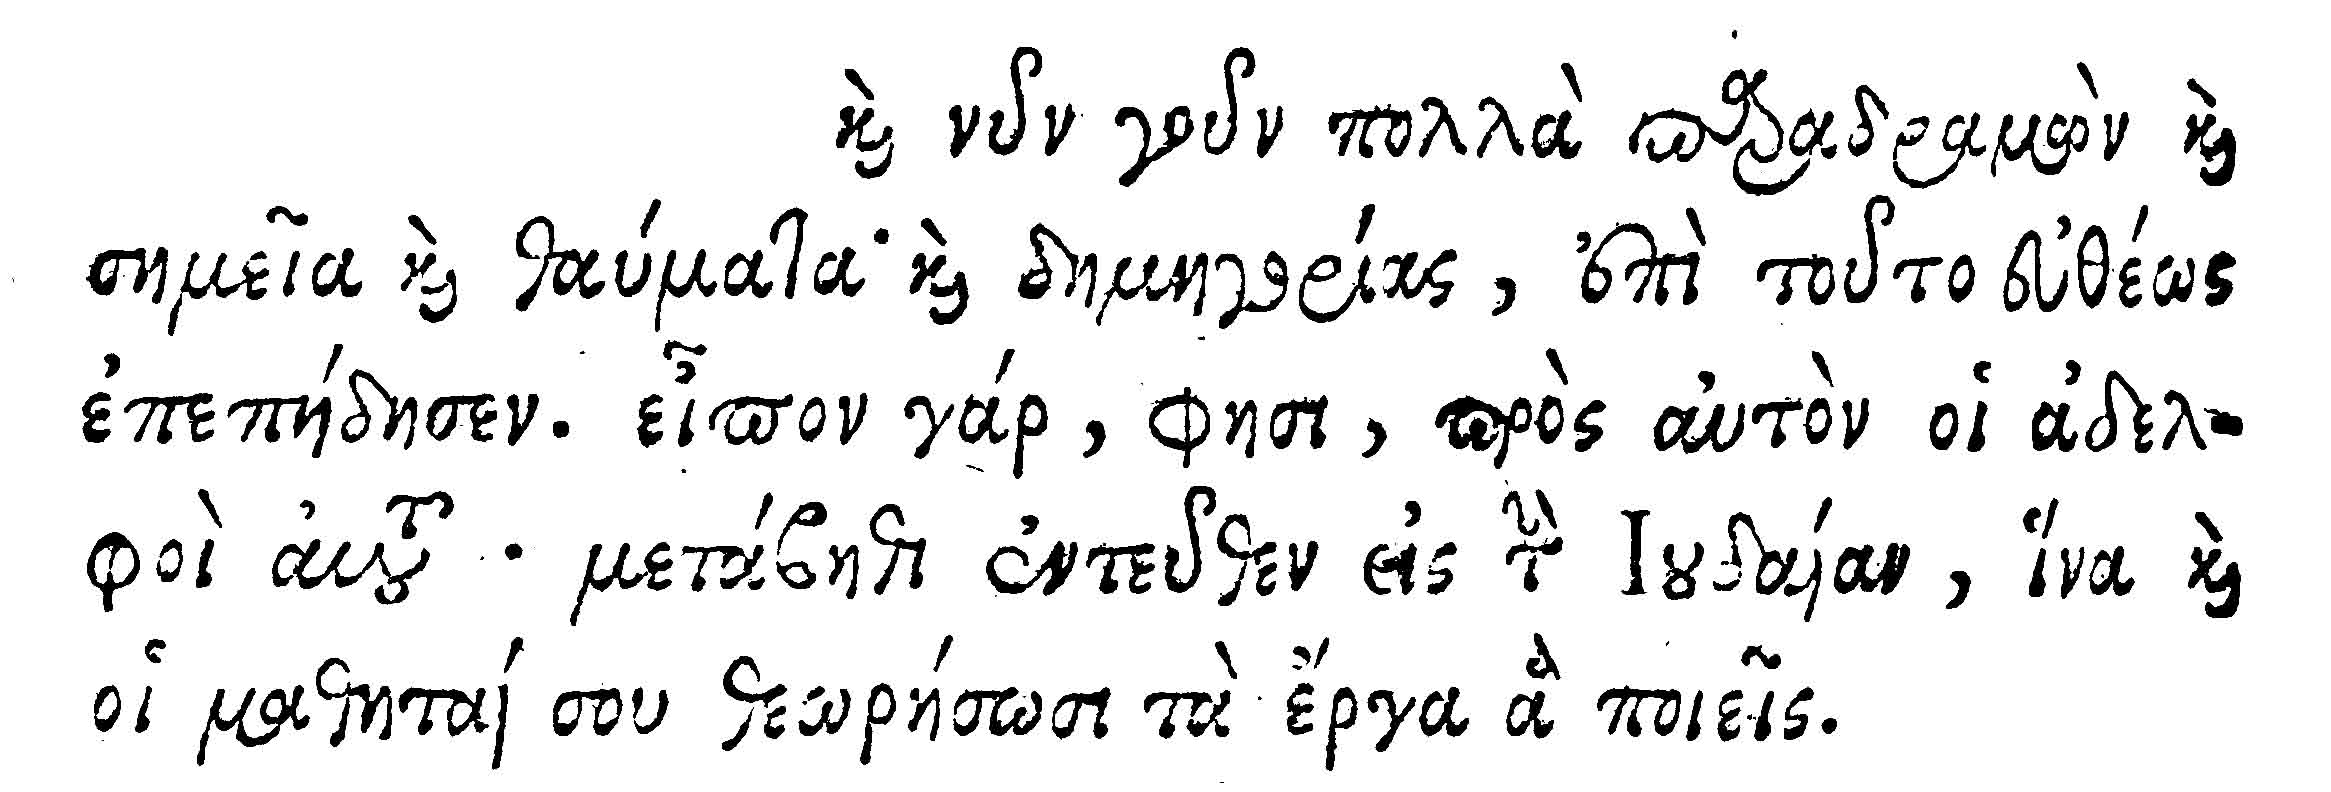 καὶ νῦν γοῦν πολλὰ παραδραμὼν καὶ
σημεῖα καὶ θαύματα· καὶ δημηγορίας, ἐπὶ τοῦτο εὐθέως
ἐπεπήδησεν. εἶπον γάρ, φησι, πρὸς αὐτὸν οἱ ἀδελ-
φοὶ ἀυτοῦ · μετάβηθι ἐντεῦθεν εἰς τὴν Ιουδαίαν, ἵνα καὶ
οἱ μαθηταί σου θεωρήσωσι τὰ ἔργα ἃ ποιεῖς.